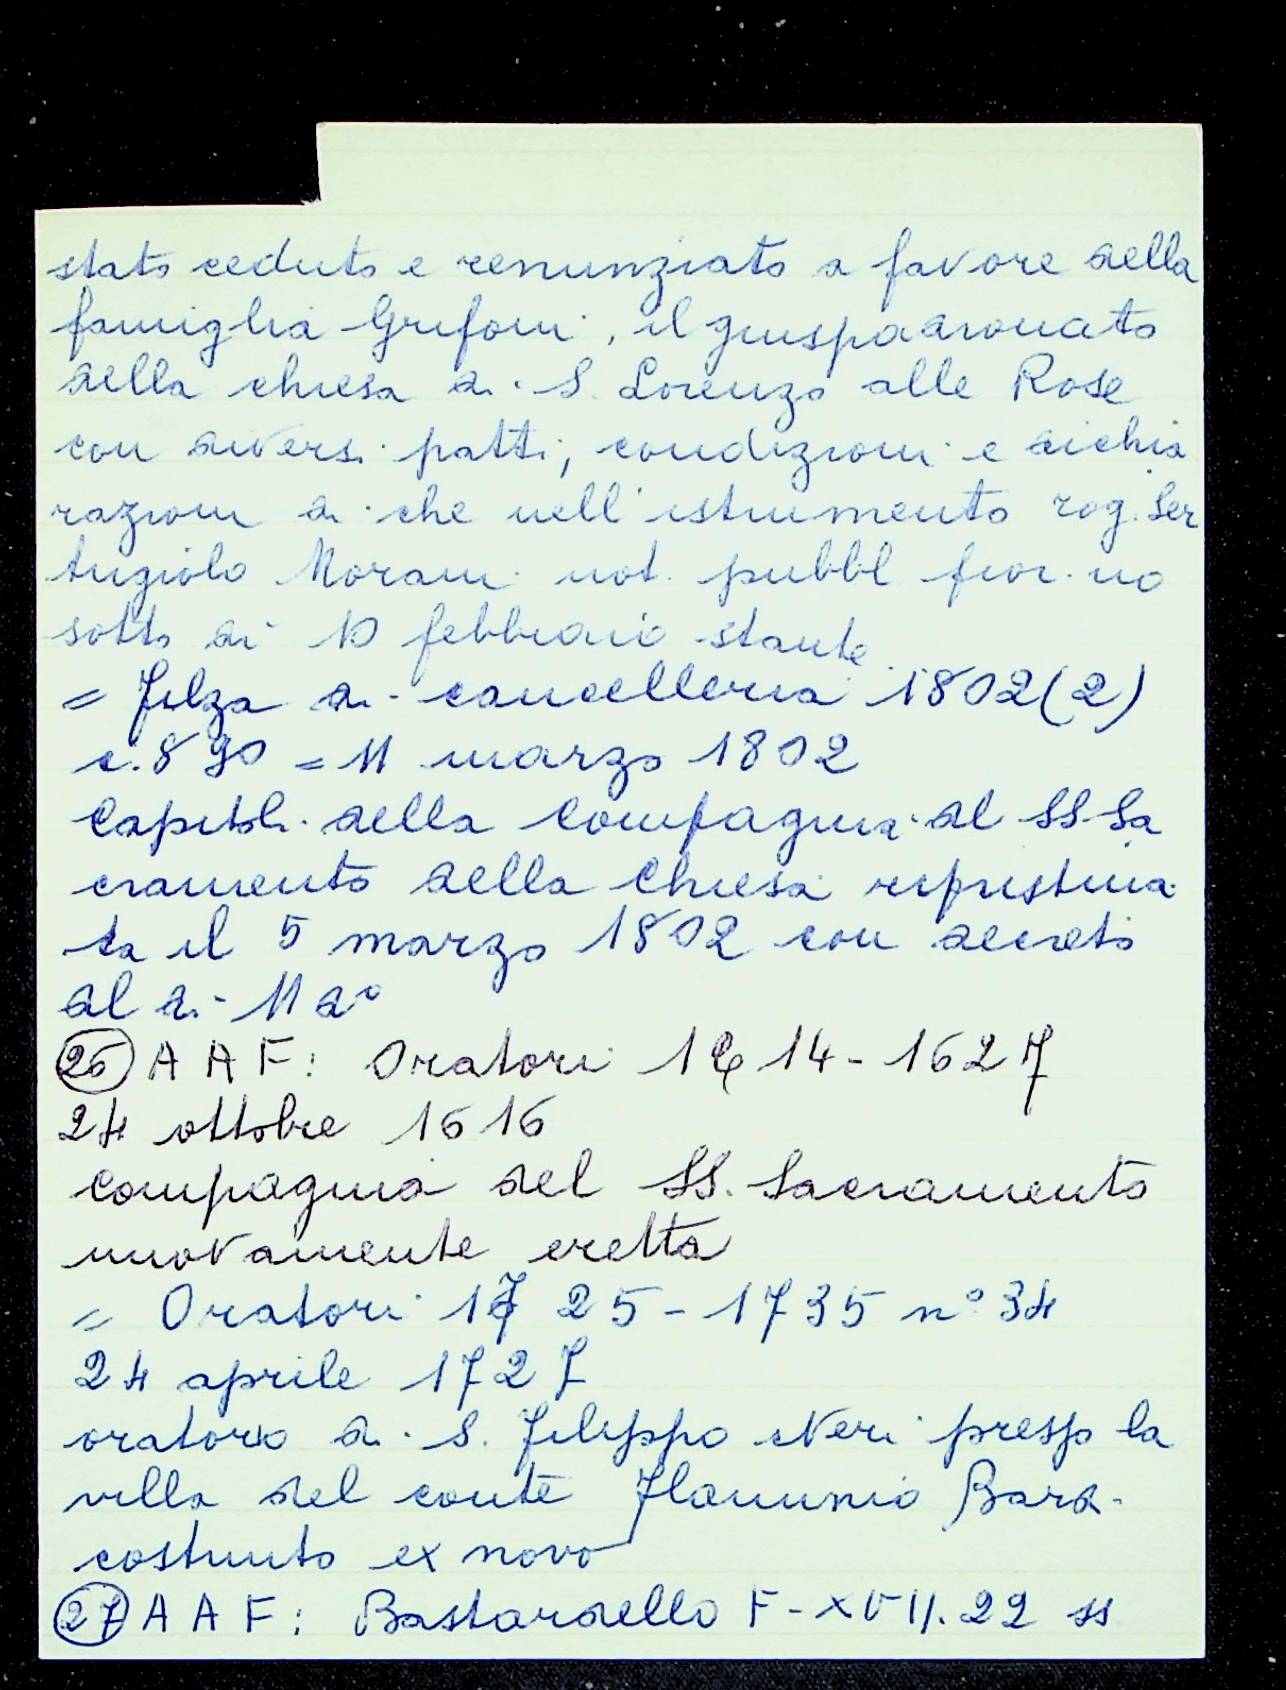 stato ceduto e renunziato a favore della
famiglia Grifoni, il giuspadronato
della chiesa di S. Lorenzo alle Rose
con diversi patti, condizioni e dichia
razioni di che nell'istrumento rog. Ser
Angiolo Morani not. pubbl fior.no
sotto dì 10 febbraio stante.
= Filza di cancelleria 1802(2)
c. 890 = 11 marzo 1802
Capitoli della Compagnia del SS Sa
cramento della Chiesa ripristina
ta il 5 marzo 1802 con decreto
del dì 11 d°
26 A A F: Oratori 1614-1627
24 ottobre 1616
compagnia del SS. Sacramento
nuovamente eretta
= Oratori 1725-1735 n° 34
24 aprile 1727
oratorio di S. Filippo Neri presso la
villa del conte Flaminio Bardi
costruito ex novo
27 A A F: Bastardello F-XVII.22 ss